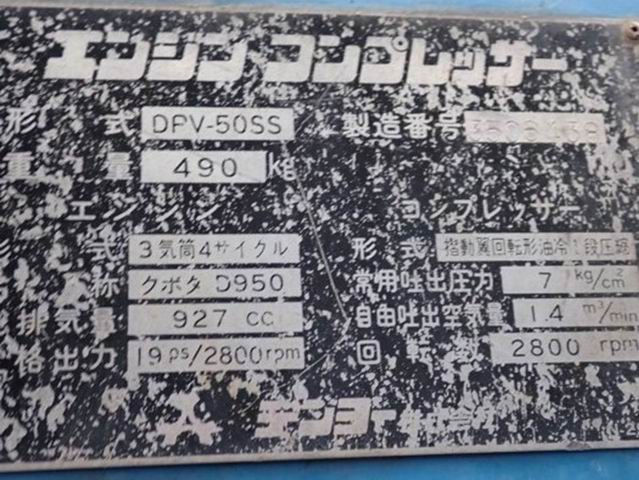 エンジンコンプレッサー
形式 DPV-50SS 製造番号
重量 490 kg
エンジン コンプレッサー
形式 3気筒4サイクル 形式 摺動翼回転形油冷1段圧縮
称 クボタ D950 常用吐出圧力 7 kg/cm²
排気量 927 cc 自由吐出空気量 1.4 m³/min
格出力 19 ps/2800rpm 回転数 2800 rpm
デンヨー株式会社